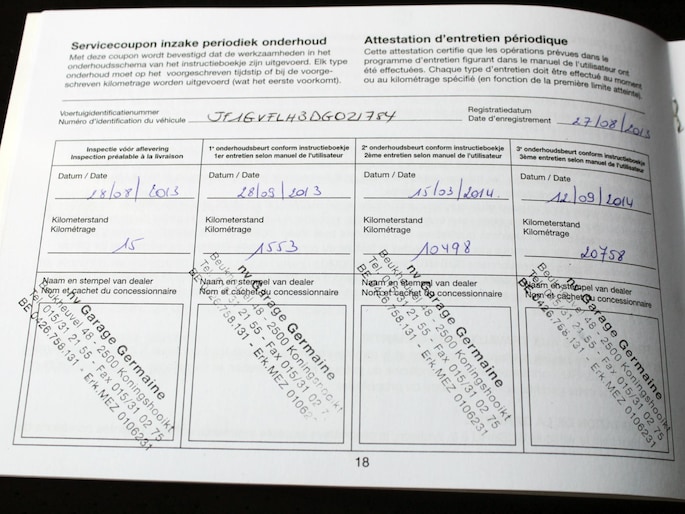 Servicecoupon inzake periodiek onderhoud
Met deze coupon wordt bevestigd dat de werkzaamheden in het
onderhoudsschema van het instructieboekje zijn uitgevoerd. Elk type
onderhoud moet op het voorgeschreven tijdstip of bij de voorge-
schreven kilometrage worden uitgevoerd (wat het eerste voorkomt).
Attestation d'entretien périodique
Cette attestation certifie que les opérations prévues dans le
programme d'entretien figurant dans le manuel de l'utilisateur ont
été effectuées. Chaque type d'entretien doit être effectué au moment
ou au kilométrage spécifié (en fonction de la première limite atteinte).
Voertuigidentificatienummer
Numéro d'identification du véhicule JF1GVFLH3DG021784
Registratiedatum
Date d'enregistrement 27/08/2013
Inspectie vóór aflevering
Inspection préalable à la livraison
Datum / Date
28/08/2013
Kilometerstand
Kilométrage
15
Naam en stempel van dealer
Nom et cachet du concessionnaire
nv Garage Germaine
Beukheuvel 48 - 2500 Koningshooikt
Tel. 015/31 21 55 - Fax 015/31 02 75
BE 0426.758.131 - Erk.MEZ 0106231
1e onderhoudsbeurt conform instructieboekje
1er entretien selon manuel de l'utilisateur
Datum / Date
28/09/2013
Kilometerstand
Kilométrage
1553
Naam en stempel van dealer
Nom et cachet du concessionnaire
nv Garage Germaine
Beukheuvel 48 - 2500 Koningshooikt
Tel. 015/31 21 55 - Fax 015/31 02 7
BE 0426.758.131 - Erk.MEZ 01062
2e onderhoudsbeurt conform instructieboekje
2ème entretien selon manuel de l'utilisateur
Datum / Date
15/03/2014
Kilometerstand
Kilométrage
10498
Naam en stempel van dealer
Nom et cachet du concessionnaire
nv Garage Germaine
Beukheuvel 48 - 2500 Koningshooikt
Tel. 015/31 21 55 - Fax 015/31 02 75
BE 0426.758.131 - Erk.MEZ 0106231
3e onderhoudsbeurt conform instructieboekje
3ème entretien selon manuel de l'utilisateur
Datum / Date
12/09/2014
Kilometerstand
Kilométrage
20758
Naam en stempel van dealer
Nom et cachet du concessionnaire
nv Garage Germaine
Beukheuvel 48 - 2500 Koningshooikt
Tel. 015/31 21 55 - Fax 015/31 02 75
BE 0426.758.131 - Erk.MEZ 0106231
18